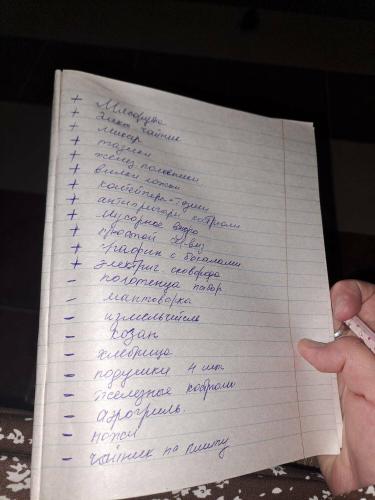 + Мясорубка
+ Элект чайник
+ миксер
+ тазики
+ желез половники
+ вилки ложки
+ контейнера-тазики
+ антипригарн кастрюли
+ мусорное ведро
+ простой
+ графин с бокалами
+ электрич. сковорода
- полотенца повар
- мантоварка
- измельчитель
- казан
- хлебница
- подушки 4 шт
- железные кастрюли
- аэрогриль.
- ножи
- чайник на плиту